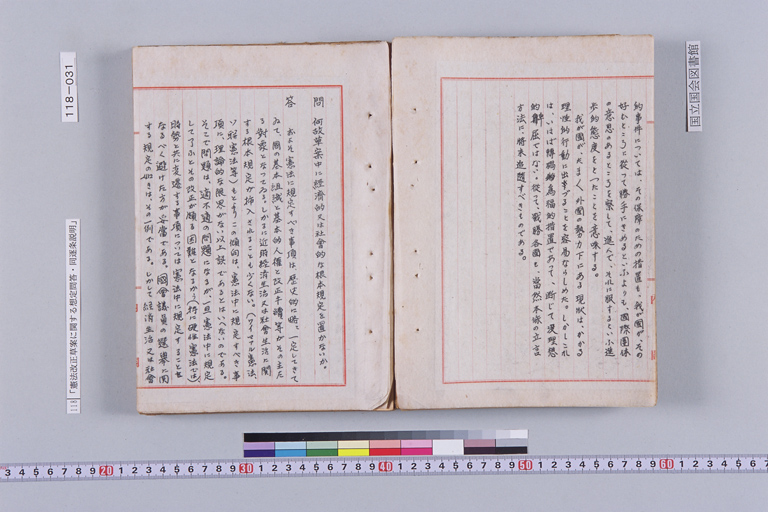 国立国会図書館
約事件については、その保障のための措置も、我が國が、その
好むところに從って勝手にきめるといふよりも、國際團体
の意思のあるところを察して、進んで、それに服するといふ進
歩的態度をとったことを意味する。
我が國が、たまく、外國の勢力下にある現狀は、かかる
理性的行動に出ずることを容易ならしめた。しかしこれ
は、いはば 為的措置であって、断じて 理想
的 ではない。從って、戰勝各國も、当然本條の立言
方法に將來追隨すべきものである。
問 何故草案中に經濟的又は社會的な根本規定を置かないか。
答
およそ憲法に規定すべき事項は、歴史的に略〻一定してきて
ゐて、國の基本組織と基本的人權と改正手續等がその主な
る對象となってゐる。しかるに近時經濟生活又は社會生活に関
する根本規定が挿入されることも少くない。(ワイマール憲法、
ソ聯憲法等)もとよりこの傾向は、憲法中に規定すべき事
項に、理論的な限界がない以上誤であるとはいへないのである。
そこで問題は、適不適の問題になるが一旦憲法中に規定
して了ふとその改正が頗る困難となるから(特に硬性憲法では)
時勢と共に変遷する事項については憲法中に規定することを
なるべく避けた方が妥當である。國會議員の選擧に関
する規定の如きは、その一例である。しかして經濟生活又は社會
118-031
118「憲法改正草案に関する想定問答・同逐条説明」
3 4 5 6 7 8 9 20 1 2 3 4 5 6 7 8 9 30 1 2 3 4 5 6 7 8 9 40 1 2 3 4 5 6 7 8 9 50 1 2 3 4 5 6 7 8 9 60 1 2 3 4 5 6 7